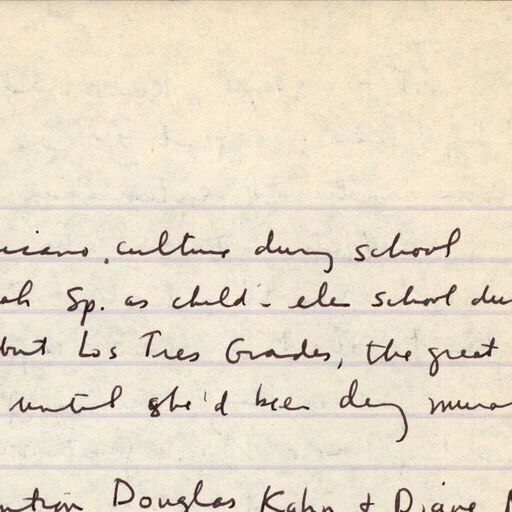 culture during school
Sp. as child - elem school
but Los Tres Grandes, the great
until she'd been doing
Douglas Kahn + Diane